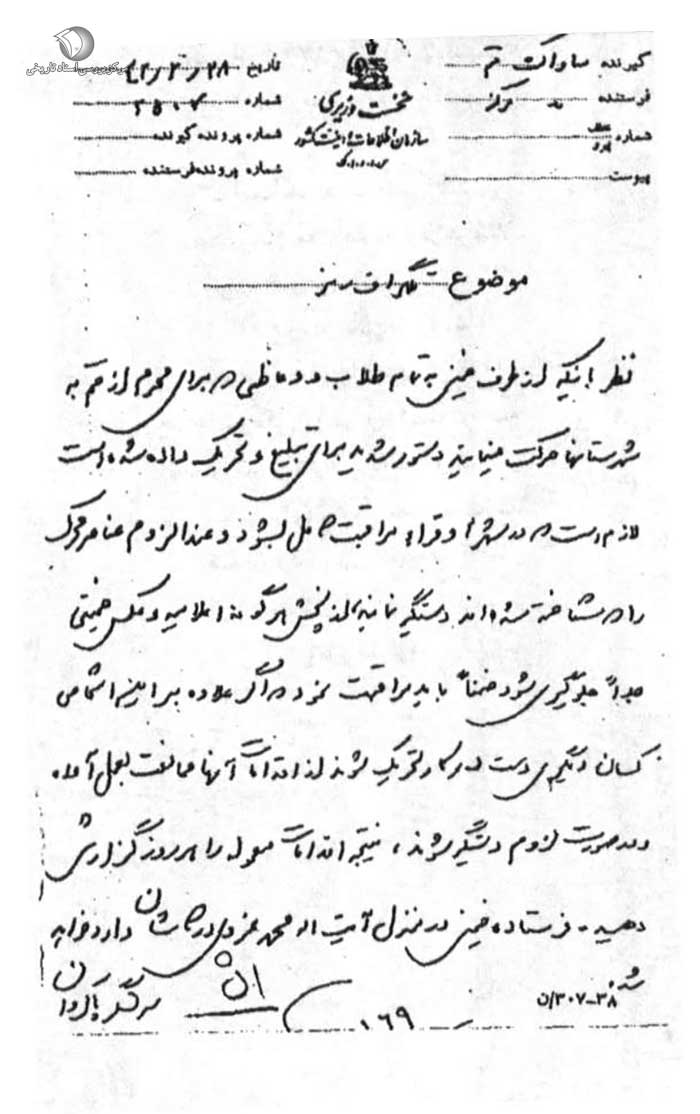 مرکز بررسی اسناد تاریخی
گیرنده ساواک قم
فرستنده مرکز
شماره
پیوست
نخست وزیری
سازمان اطلاعات و امنیت کشور
س.ا.و.ا.ک
تاریخ ۴۲/۲/۲۸
شماره
شماره پرونده گیرنده
شماره پرونده فرستنده
موضوع تلگراف رمز
نظر باینکه از طرف خمینی به تمام طلاب و وعاظی که برای محرم از قم به
شهرستانها حرکت مینمایند دستور شدید برای تبلیغ و تحریک داده شده است
لازم است که در شهرها و قراء مراقبت کامل بشود و عندالزوم عناصر محرک
را که شناخته شده‌اند دستگیر نمایند از پخش هرگونه اعلامیه و عکس خمینی
جداً جلوگیری شود ضمناً باید مراقبت نمود که اگر علاوه بر اینها اشخاص
کسان دیگری دست اندرکار تحریک شوند از اقدامات آنها ممانعت بعمل آمده
و در صورت لزوم دستگیر شوند، نتیجه اقدامات معموله را هر روز گزارش
دهید - فرستاده خمینی در منزل آیت اله محمد غروی در کاشان وارد خواهد
شد
۳۰۷-۳۸/ن
۱۶۹
سرلشگر پاکروان